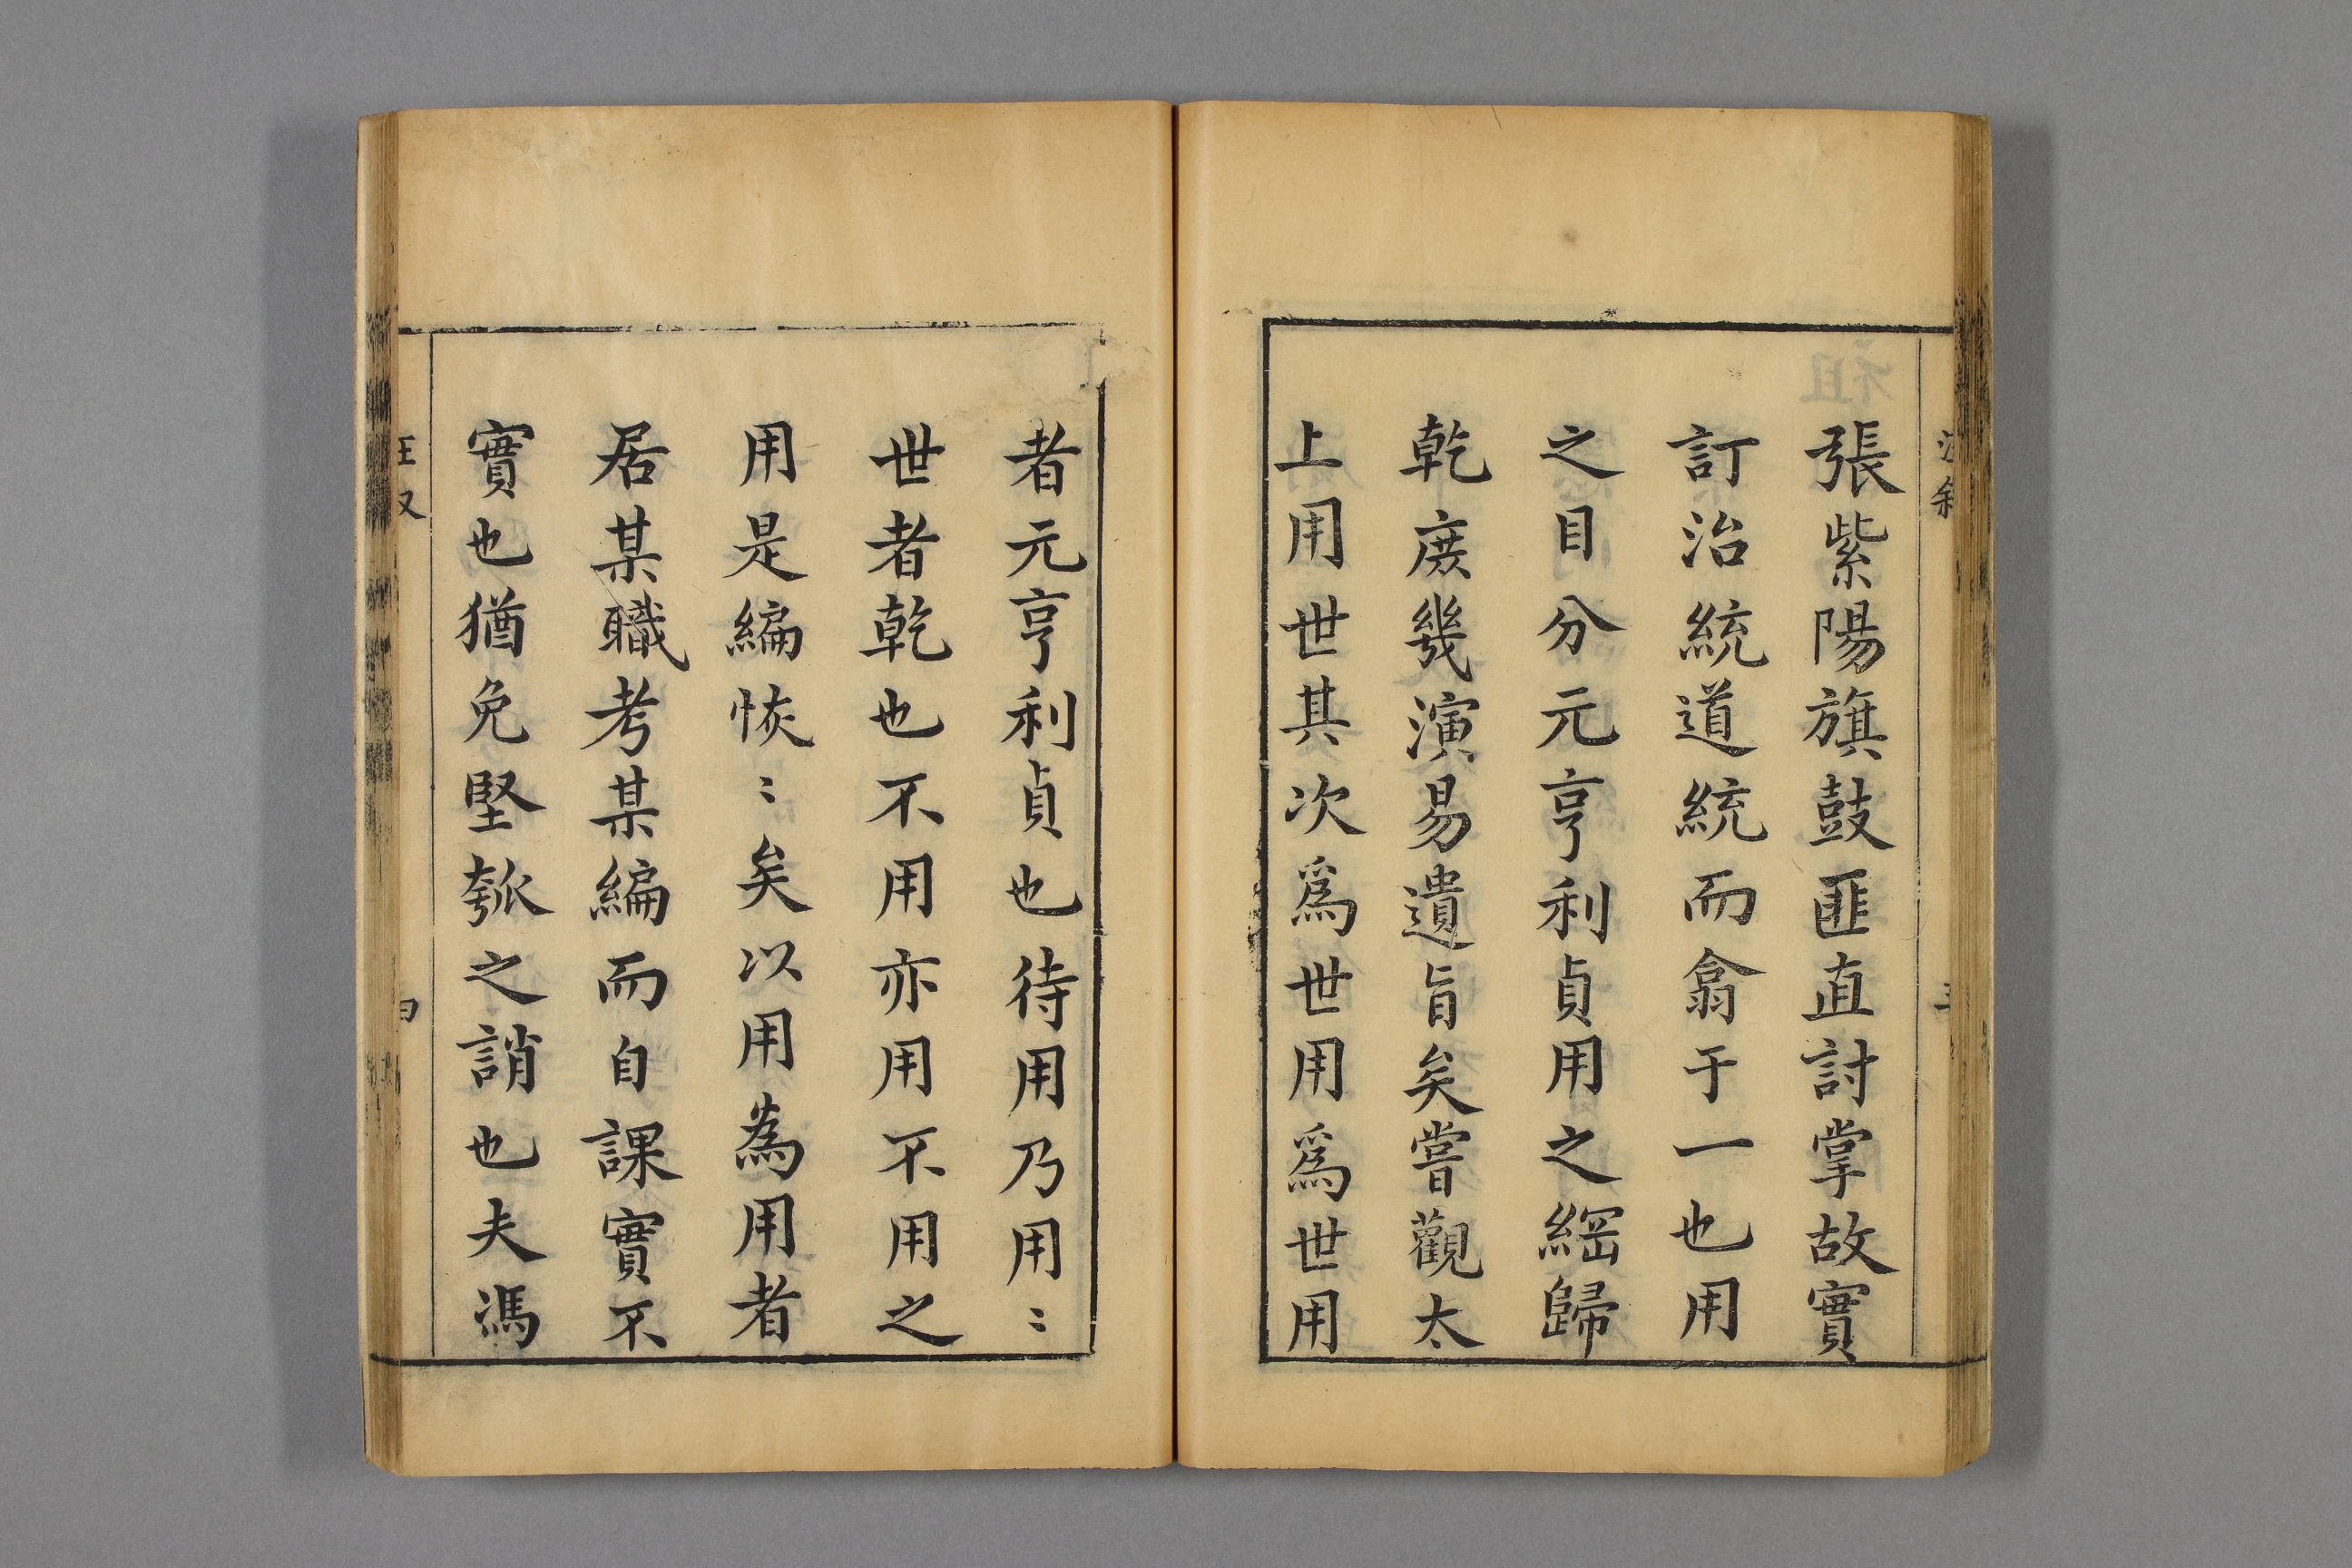 張紫陽旗鼓匪直討掌故實
訂治統道統而翕于一也用
之目分元亨利貞用之綱歸
乾庻幾演易遺旨矣嘗觀太
上用世其次爲世用爲世用
者元亨利貞也待用乃用〻
世者乾也不用亦用不用之
用是編恢〻矣以用為用者
居某職考某編而自課實不
實也猶免堅瓠之誚也夫馮